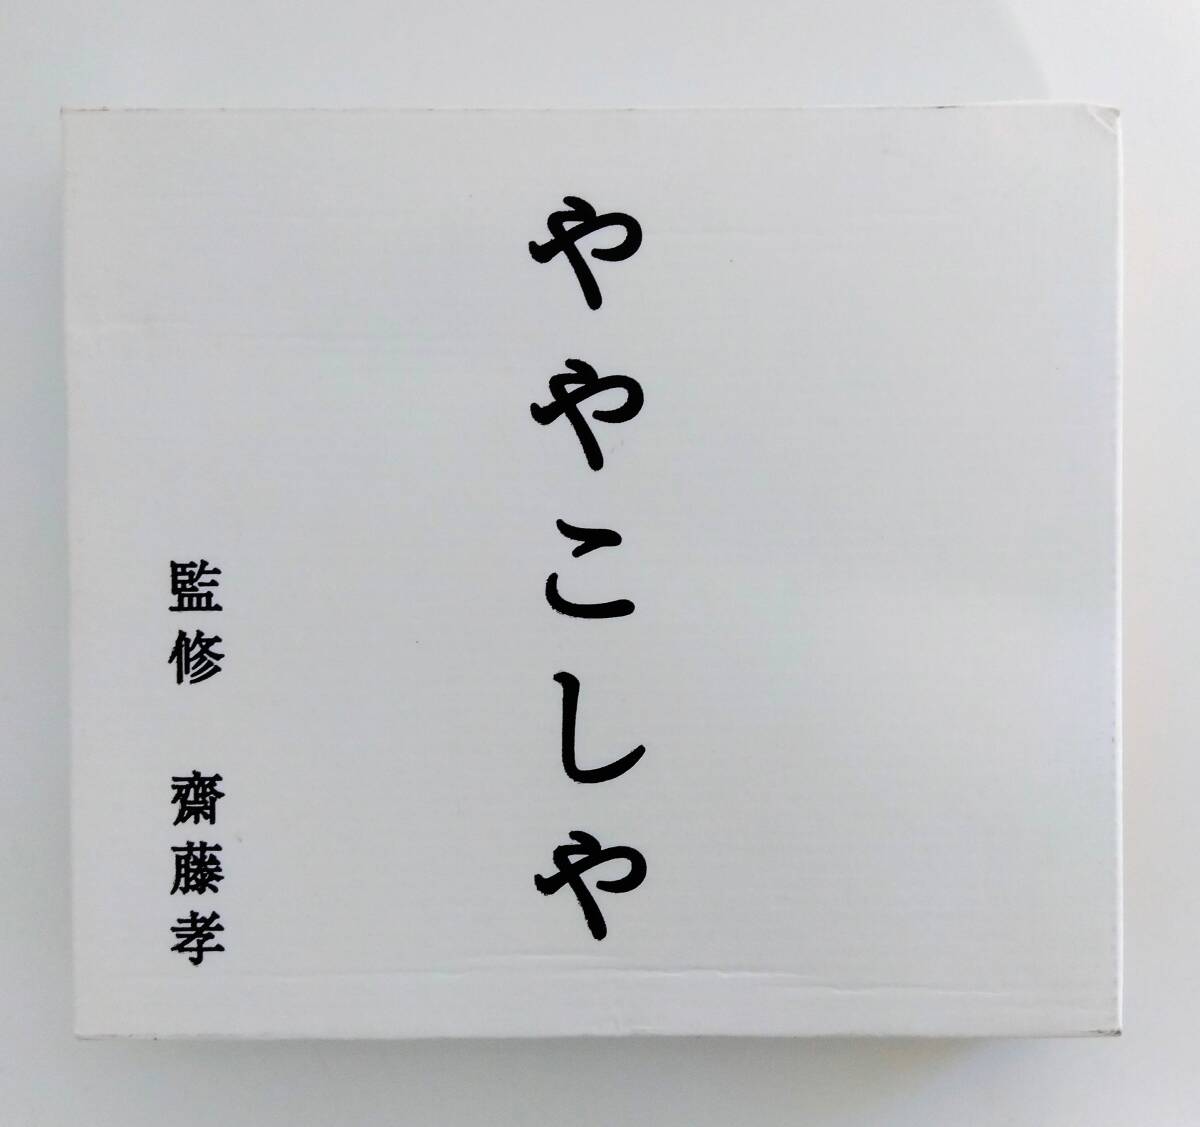 ややこしや
監修 齋藤孝